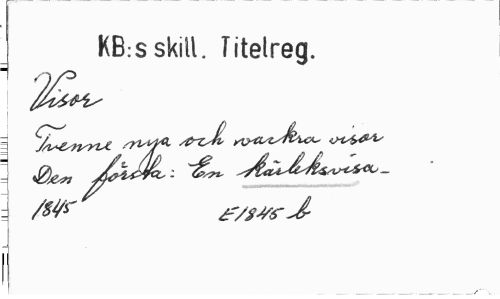 KB:s skill. Titelreg.
Visor
Tvenne nya och wackra visor
Den första: En kärleksvisa_
1845 E1845 b